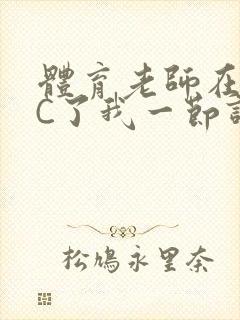 體育老師在
C了我一節
松鳩永里奈